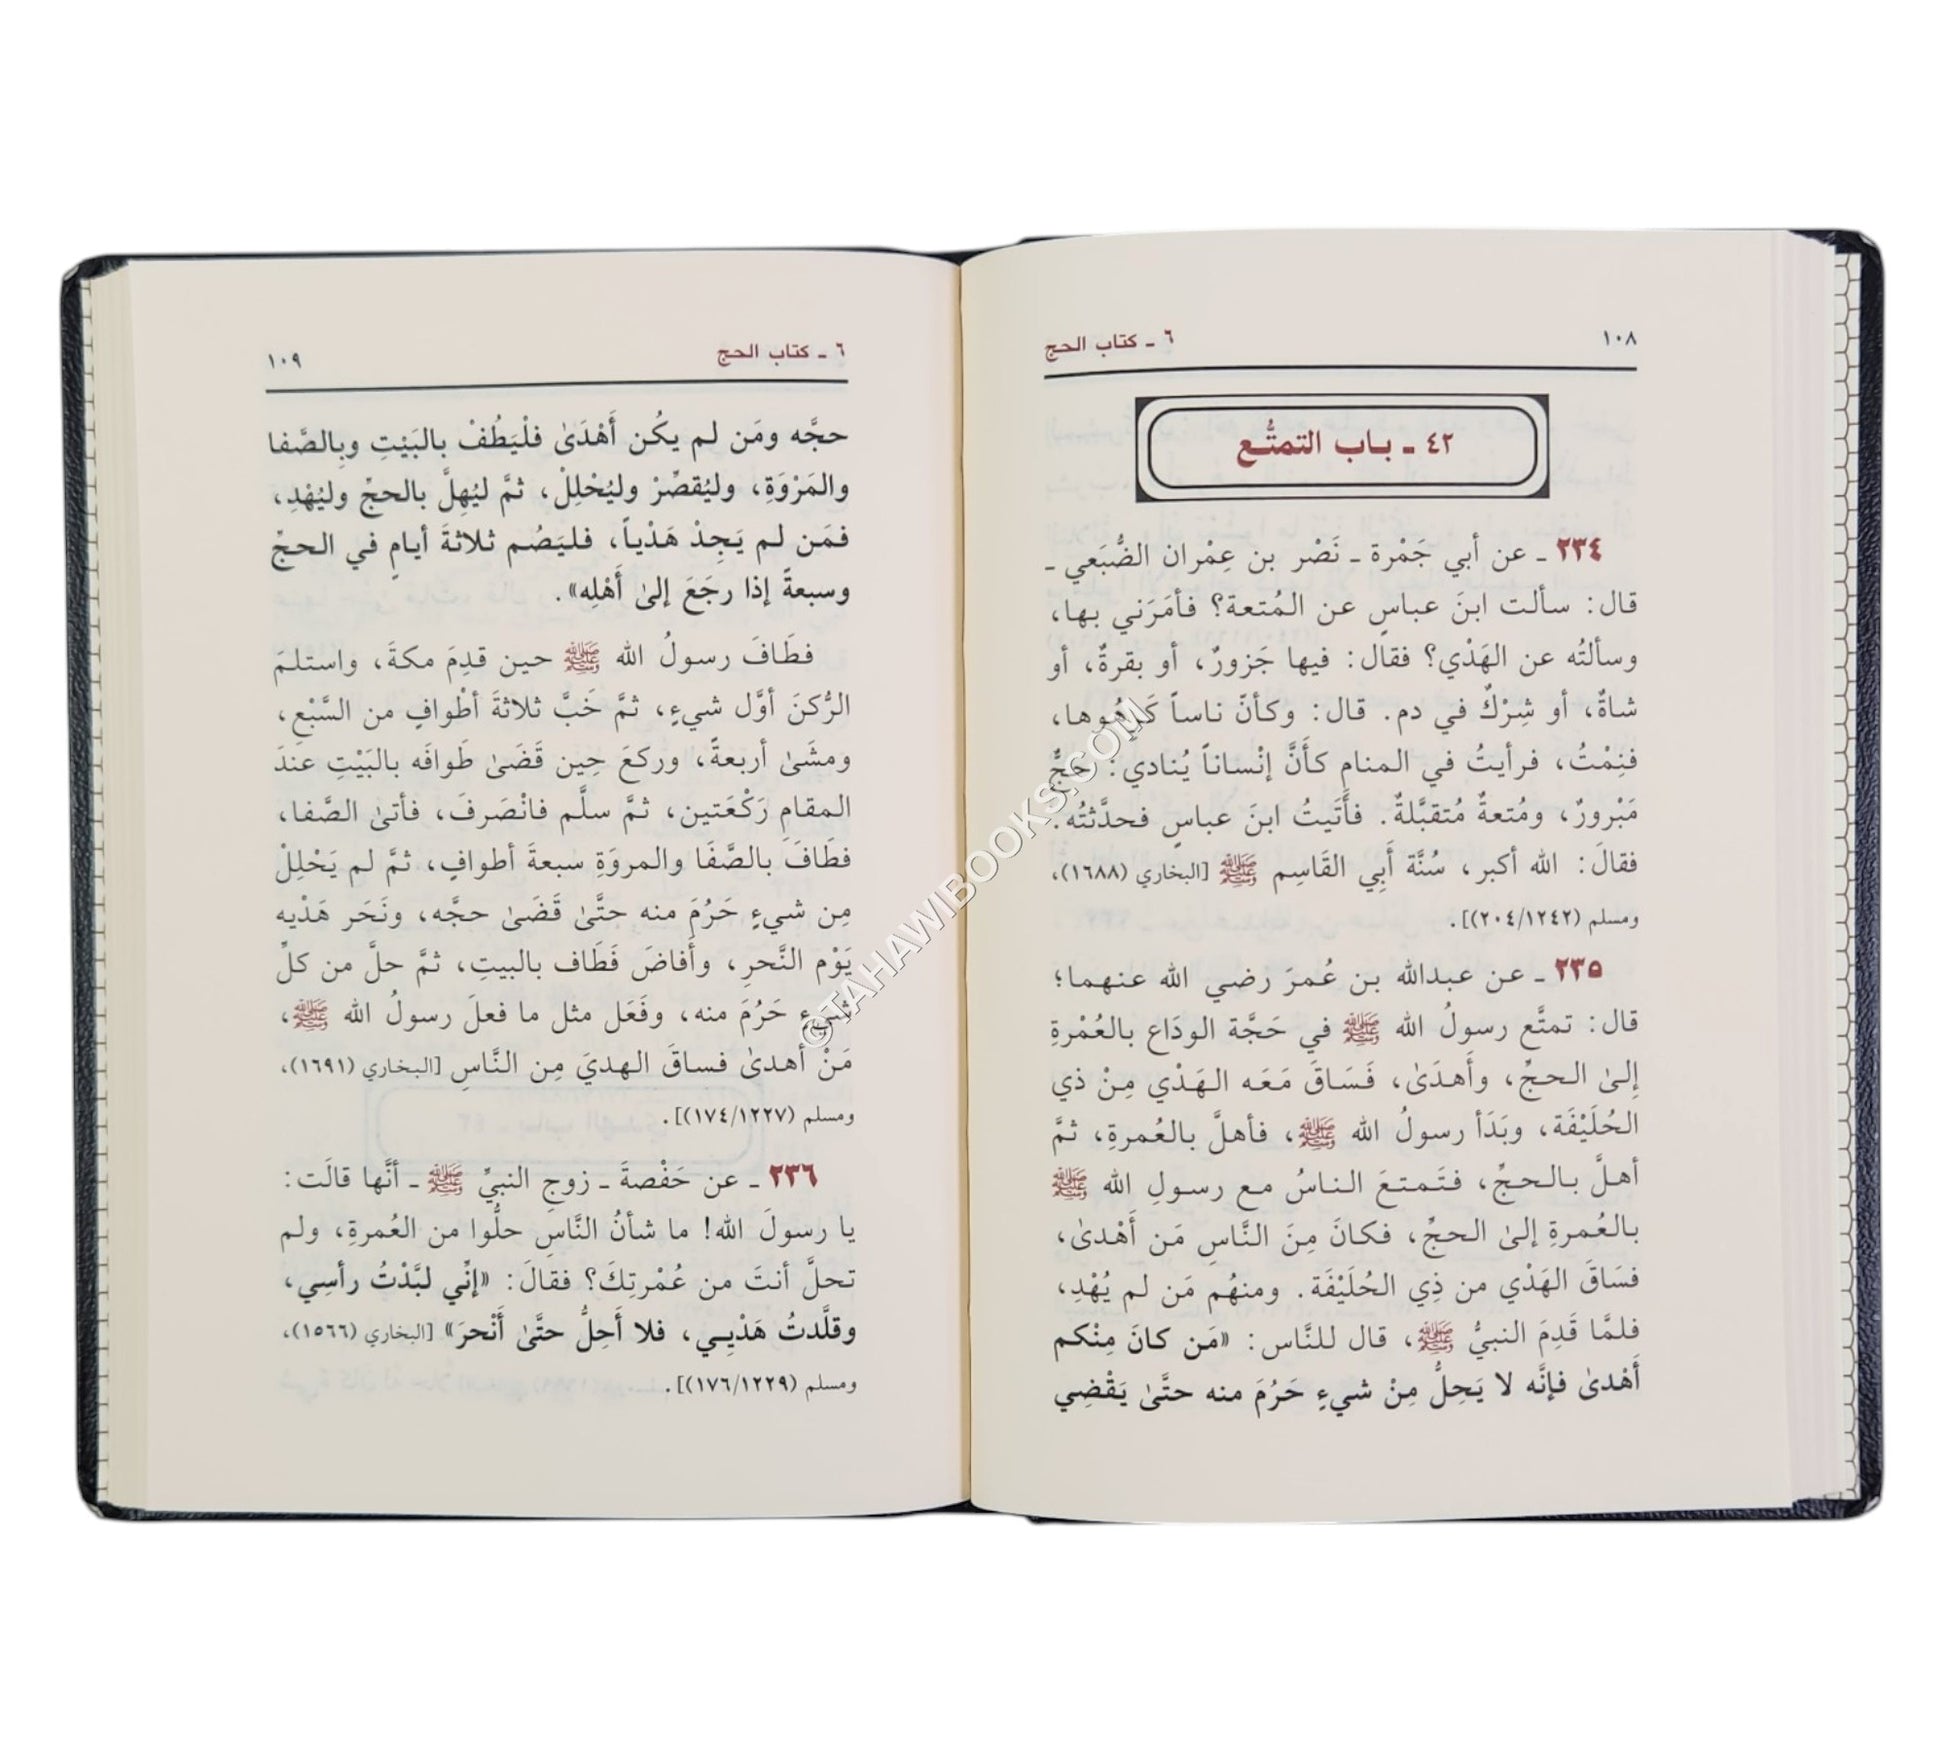 ١٠٨
٦ ـ كتاب الحج
٤٢ ـ باب التمتُّع
٢٣٤ ـ عن أبي جَمْرة ـ نَصْر بن عِمْران الضُّبَعي ـ
قال: سألت ابنَ عباسٍ عن المُتعة؟ فأمَرَني بها،
وسألتُه عن الهَدْي؟ فقال: فيها جَزورٌ، أو بقرةٌ، أو
شاةٌ، أو شِرْكٌ في دم. قال: وكأنّ ناساً كَرِهُوها،
فنِمْتُ، فرأيتُ في المنامِ كأَنَّ إنْساناً يُنادي: حَجٌّ
مَبْرورٌ، ومُتعةٌ مُتقبَّلةٌ. فأَتَيتُ ابنَ عباسٍ فحدَّثتُه.
فقالَ: الله أكبر، سُنَّة أَبِي القَاسِم ﷺ [البخاري (١٦٨٨)،
ومسلم (٢٠٤/١٢٤٢)].
٢٣٥ ـ عن عبدالله بن عُمرَ رضي الله عنهما؛
قال: تمتَّع رسولُ الله ﷺ في حَجَّة الودَاع بالعُمْرةِ
إِلىٰ الحجِّ، وأَهدَىٰ، فَسَاقَ مَعَه الهَدْي مِنْ ذي
الحُلَيْفَة، وبَدَأ رسولُ الله ﷺ، فأهلَّ بالعُمرةِ، ثمَّ
أهلَّ بالحجِّ، فتَمتعَ الناسُ مع رسولِ الله ﷺ
بالعُمرةِ إلىٰ الحجِّ، فكانَ مِنَ النَّاسِ مَن أَهْدىٰ،
فسَاقَ الهَدْي من ذِي الحُلَيْفَة. ومنهُم مَن لم يُهْدِ،
فلمَّا قَدِمَ النبيُّ ﷺ، قال للنَّاس: «مَن كانَ مِنْكم
أَهْدىٰ فإنَّه لا يَحِلُّ مِنْ شيءٍ حَرُمَ منه حتَّىٰ يَقْضِي
٦ ـ كتاب الحج
١٠٩
حجَّه ومَن لم يكُن أَهْدَىٰ فلْيَطُفْ بالبَيْتِ وبِالصَّفا
والمَرْوَةِ، وليُقصِّرْ وليُحْلِلْ، ثمَّ ليُهِلَّ بالحجِّ وليُهْدِ،
فمَن لم يَجِدْ هَدْياً، فليَصُم ثلاثةَ أيامٍ في الحجّ
وسبعةً إذا رجَعَ إلىٰ أَهْلِه».
فطَافَ رسولُ الله ﷺ حين قدِمَ مكةَ، واستلمَ
الرُّكنَ أوَّل شيءٍ، ثمَّ خَبَّ ثلاثةَ أطْوافٍ من السَّبْعِ،
ومشَىٰ أربعةً، وركعَ حِين قَضَىٰ طَوافَه بالبَيْتِ عندَ
المقامِ رَكْعَتين، ثمَّ سلَّم فانْصَرفَ، فأتىٰ الصَّفا،
فطَافَ بالصَّفَا والمروَةِ سبعةَ أطوافٍ، ثمَّ لم يَحْلِلْ
مِن شيءٍ حَرُمَ منه حتَّىٰ قَضَىٰ حجَّه، ونَحَر هَدْيه
يَوْم النَّحرِ، وأَفاضَ فَطَاف بالبيتِ، ثمَّ حلَّ من كلِّ
شيءٍ حَرُمَ منه، وفَعَل مثل ما فعلَ رسولُ الله ﷺ،
مَنْ أهدىٰ فساقَ الهديَ مِن النَّاسِ [البخاري (١٦٩١)،
ومسلم (١٧٤/١٢٢٧)].
٢٣٦ ـ عن حَفْصةَ ـ زوجِ النبيِّ ﷺ ـ أنَّها قالَت:
يا رسولَ الله! ما شأنُ النَّاسِ حلُّوا من العُمرةِ، ولم
تحلَّ أنتَ من عُمْرتِكَ؟ فقالَ: «إنِّي لبَّدْتُ رأسِي،
وقلَّدتُ هَدْيِـي، فلا أَحِلُّ حتَّىٰ أَنْحرَ» [البخاري (١٥٦٦)،
ومسلم (١٧٦/١٢٢٩)].
©TAHAWIBOOKS.COM